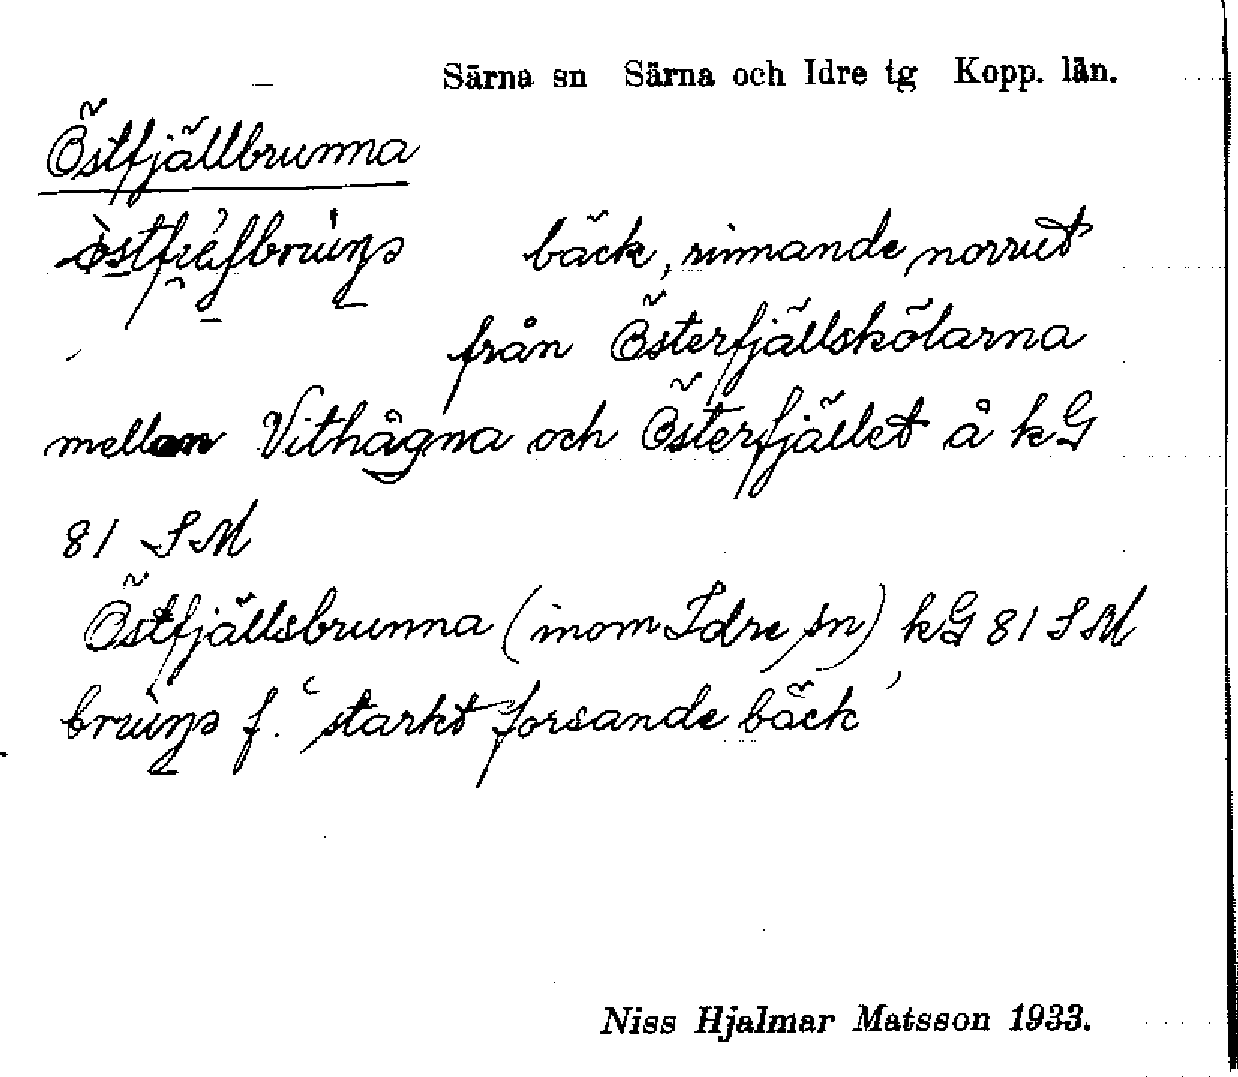 Särna sn Särna och Idre tg Kopp. län.
Östfjällbrunna
bäck, rinnande norrut
från Österfjällskölarna
mellan Vithågna och Österfjället å kG
81 SM
Östfjällsbrunna (inom Idre sn) kG 81 SM
f. ‘starkt forsande bäck’
Niss Hjalmar Matsson 1933.